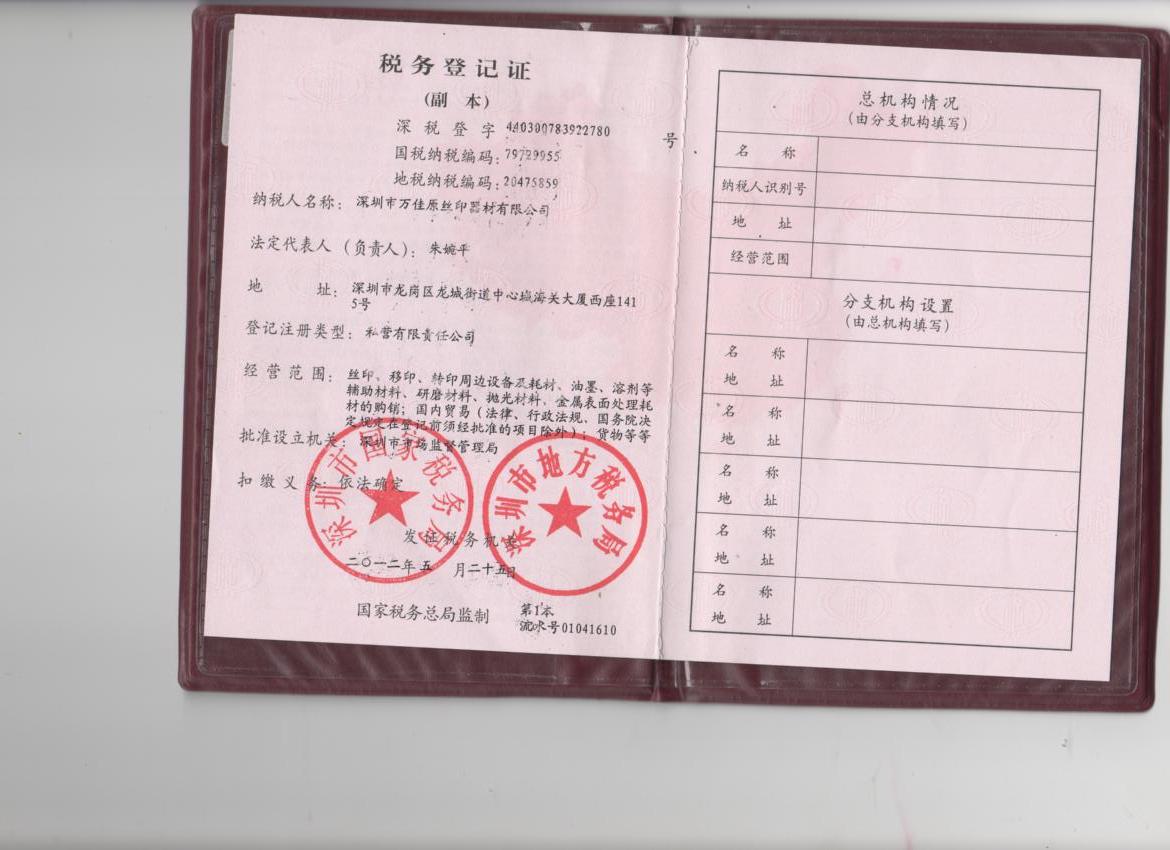 税务登记证
(副 本)
深税登字 440300783922780 号
国税纳税编码：79729955
地税纳税编码：20475859
纳税人名称： 深圳市万佳原丝印器材有限公司
法定代表人（负责人）： 朱婉平
地 址： 深圳市龙岗区龙城街道中心城海关大厦西座141
5号
登记注册类型： 私营有限责任公司
经营范围： 丝印、移印、转印周边设备及耗材、油墨、溶剂等
辅助材料、研磨材料、抛光材料、金属表面处理耗
材的购销；国内贸易（法律、行政法规、国务院决
定规定在登记前须经批准的项目除外）；货物等等
批准设立机关： 深圳市市场监督管理局
扣缴义务： 依法确定
深圳市国家税务局
深圳市地方税务局
发证税务机关
二〇一二年五 月二十五日
国家税务总局监制
第1本
流水号01041610
总机构情况
(由分支机构填写)
名 称
纳税人识别号
地 址
经营范围
分支机构设置
(由总机构填写)
名 称
地 址
名 称
地 址
名 称
地 址
名 称
地 址
名 称
地 址